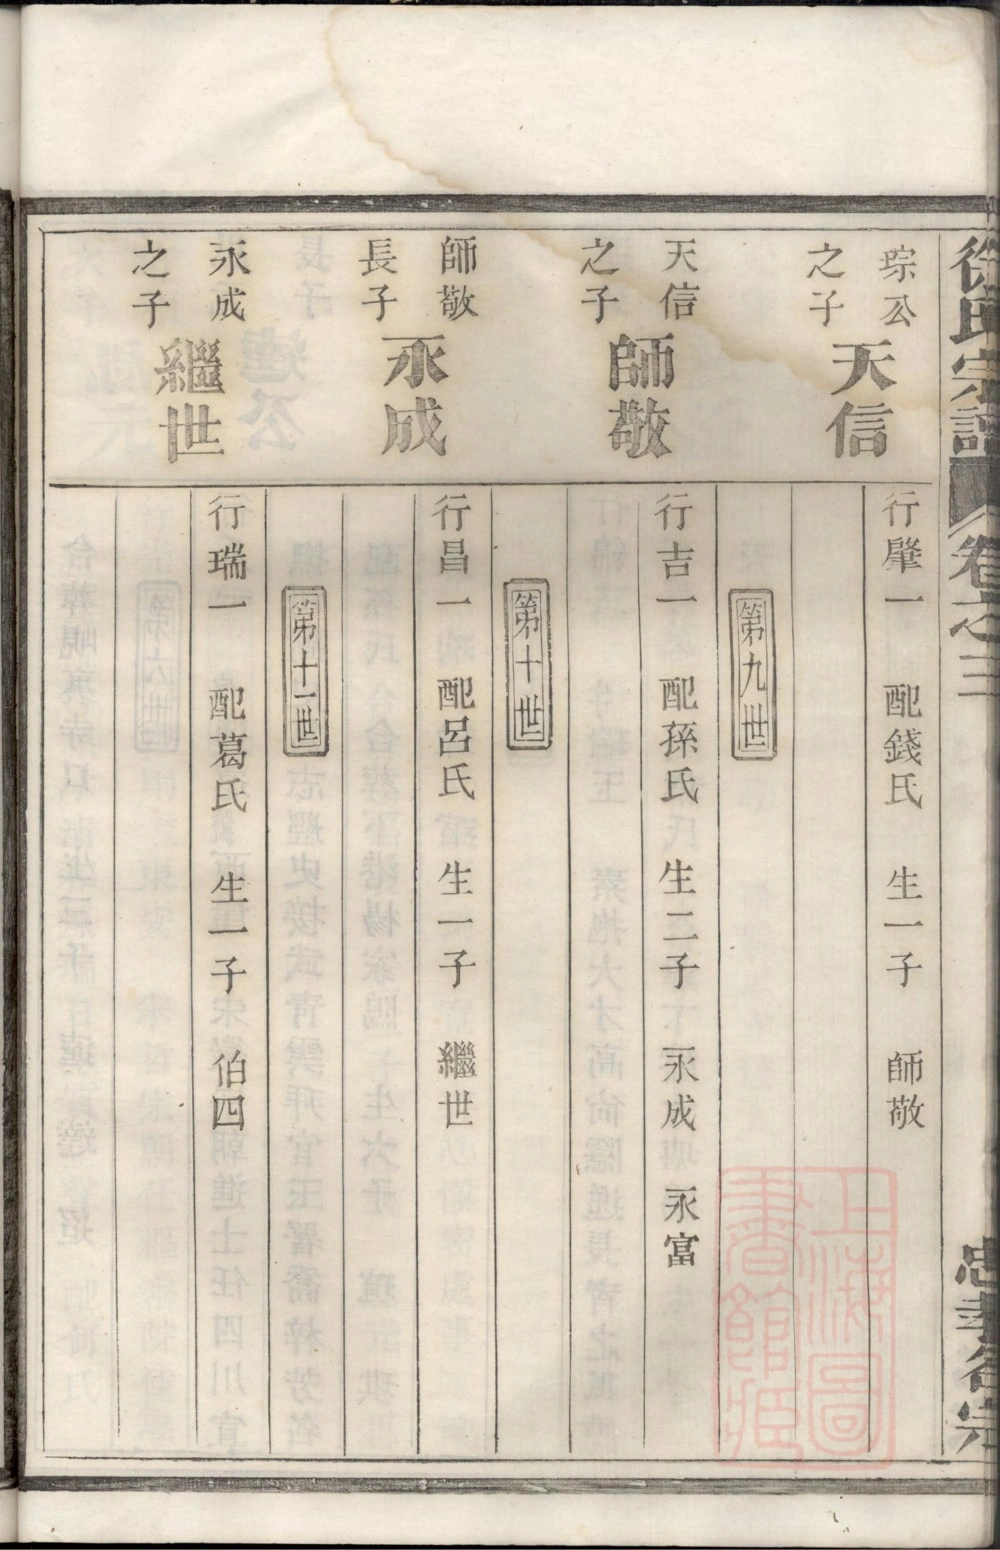 徐氏宗譜 卷之三
宗公之子
天信
行肇一 配錢氏 生一子 師敬
第九世
天信之子
師敬
行吉一 配孫氏 生二子 永成 永富
第十世
師敬長子
永成
行昌一 配呂氏 生一子 繼世
第十一世
永成之子
繼世
行瑞一 配葛氏 生一子 伯四
上海圖書館藏